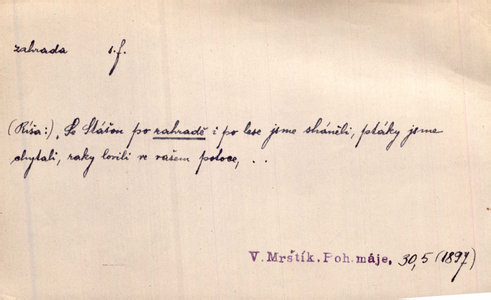 zahrada s.f.
(Ríša:) „Se Stášou po zahradě i po lese jsme sháněli, ptáky jsme
chytali, raky lovili ve vašem potoce, . .
V. Mrštík. Poh. máje, 30,5 (1897)